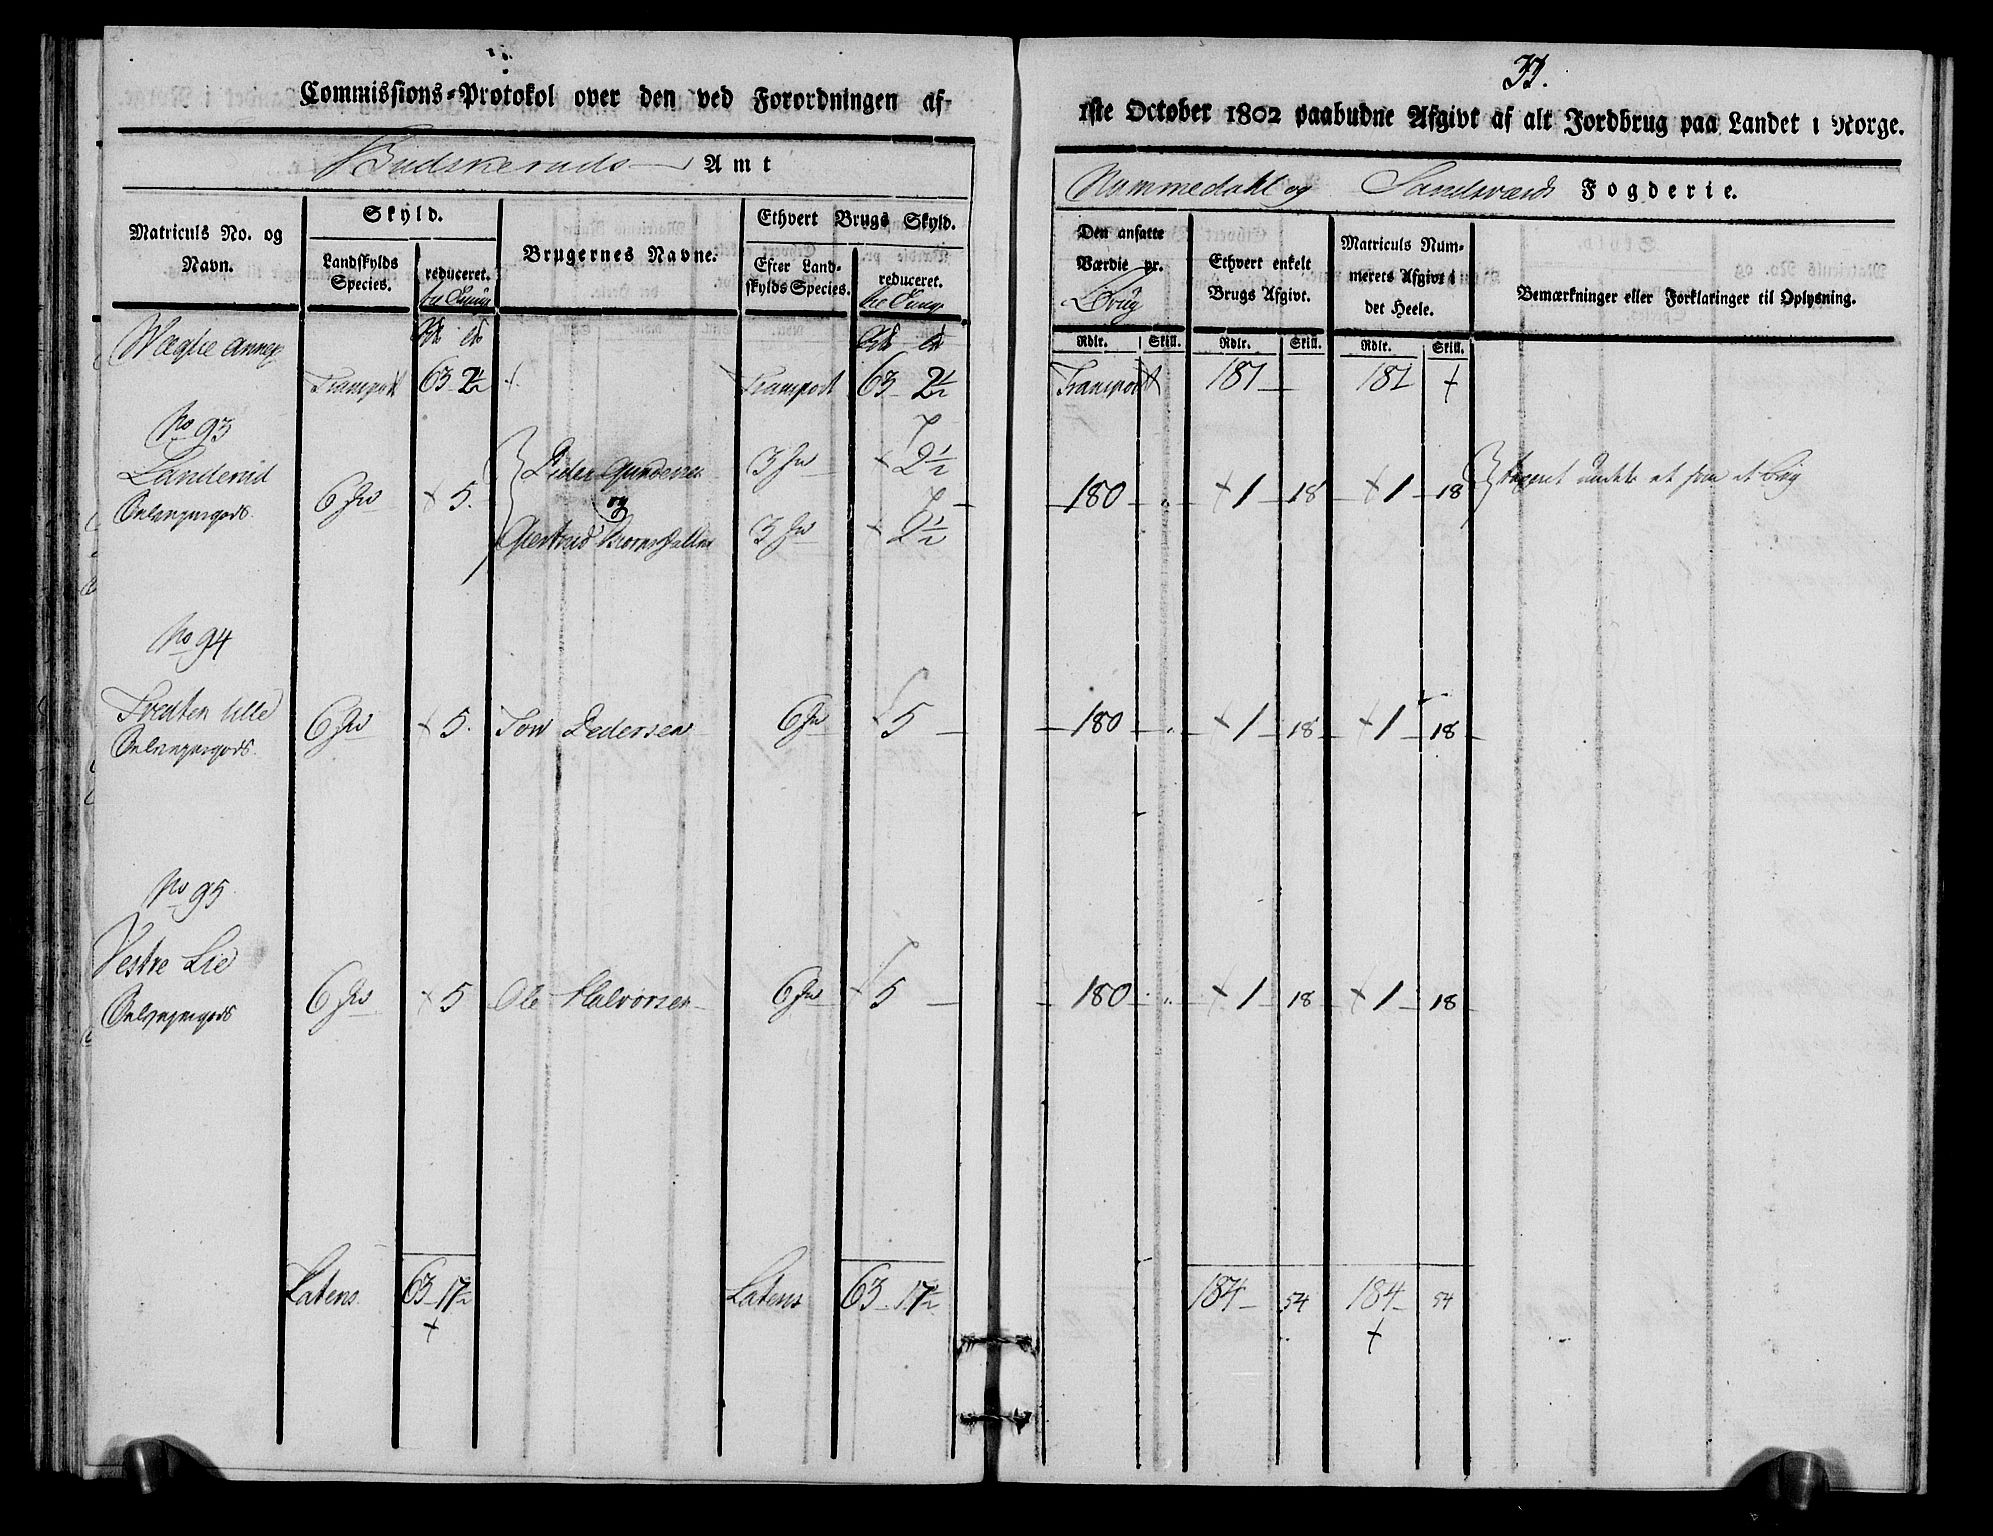 33.
Commissions-Protokol over den ved Forordningen af
1ste October 1802 paabudne Afgivt af alt Jordbrug paa Landet i Norge.
Budskeruds Amt
Nummedahl og Sandsværds Fogderie.
Matriculs No. og Navn.
Skyld.
Landskylds Species.
reduceret.
Brugernes Navne.
Ethvert Brugs Skyld.
Efter Landskylds Species.
reduceret.
Den ansatte Værdie pr. Brug
Ethvert enkelt Brugs Afgivt.
Matriculs Nummerets Afgivt i det Heele.
Bemærkninger eller Forklaringer til Oplysning.
Rdlr. Skill. Rdlr. Skill. Rdlr. Skill.
Wæglie Annex
Transport 63 2½ Transport 63 2½ Transport 187 187
No 93
Landerud
6 5. Peder Gundersen 3 2½
og 180 1 18 1 18
Giertrud 3 2½
No 94
Tvedten lille
6 5. Tow Pedersen 6 5 180 1 18 1 18
No 95
Vestre Lie
6 5 Ole Halvorsen 6 5 180 1 18 1 18
Latens 63 17½ Latens 63 17½ 184 54 184 54